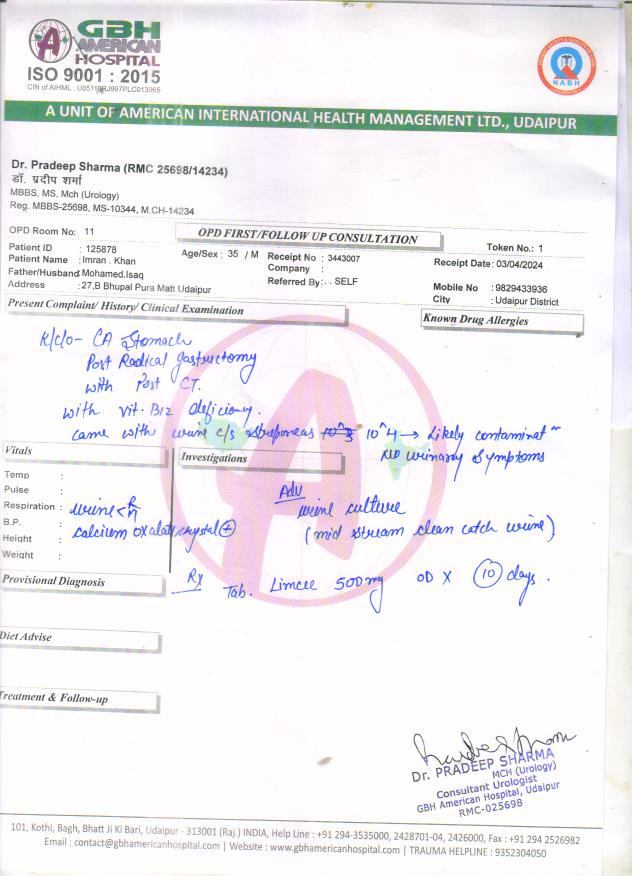 GBH
AMERICAN
HOSPITAL
ISO 9001 : 2015
CIN of AIHML : U85110RJ997PLC013965
NABH
A UNIT OF AMERICAN INTERNATIONAL HEALTH MANAGEMENT LTD., UDAIPUR
Dr. Pradeep Sharma (RMC 25698/14234)
डॉ. प्रदीप शर्मा
MBBS, MS, Mch (Urology)
Reg. MBBS-25698, MS-10344, M.CH-14234
OPD Room No: 11
OPD FIRST/FOLLOW UP CONSULTATION
Token No.: 1
Patient ID : 125878
Patient Name : Imran . Khan
Age/Sex : 35 / M
Receipt No : 3443007
Receipt Date : 03/04/2024
Company :
Father/Husband Mohamed.Isaq
Referred By : . . SELF
Mobile No : 9829433936
Address : 27,B Bhupal Pura Matt Udaipur
City : Udaipur District
Present Complaint/ History/ Clinical Examination
Known Drug Allergies
K/c/o- CA Stomach
Post Radical gastrectomy
with Post CT.
with vit. B12 deficiency.
came with urine c/s 10^4 → Likely contaminat~
No urinary Symptoms
Vitals
Investigations
Temp :
Pulse :
Respiration :
B.P. :
Height :
Weight :
urine < R/M
calcium oxalate crystal (+)
Adv
urine culture
(mid stream clean catch urine)
Provisional Diagnosis
Rx
Tab. Limcee 500mg OD X (10) days.
Diet Advise
Treatment & Follow-up
Dr. PRADEEP SHARMA
MCH (Urology)
Consultant Urologist
GBH American Hospital, Udaipur
RMC-025698
101, Kothi, Bagh, Bhatt Ji Ki Bari, Udaipur - 313001 (Raj.) INDIA, Help Line : +91 294-3535000, 2428701-04, 2426000, Fax : +91 294 2526982
Email : contact@gbhamericanhospital.com | Website : www.gbhamericanhospital.com | TRAUMA HELPLINE : 9352304050